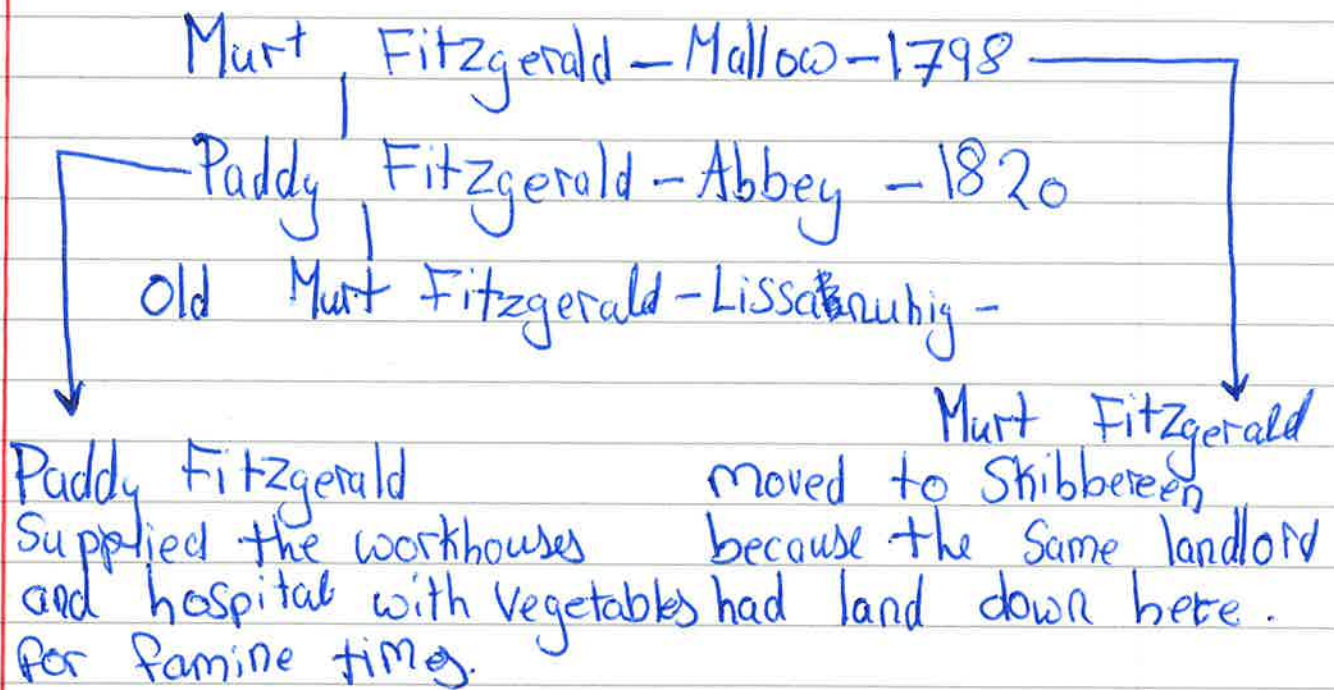 Murt Fitzgerald - Mallow - 1798
Paddy Fitzgerald - Abbey - 1820
Old Murt Fitzgerald - Lissanuhig -
Paddy Fitzgerald
Supplied the workhouses
and hospital with vegetables
for famine times.
Murt Fitzgerald
moved to Skibbereen
because the same landlord
had land down here.